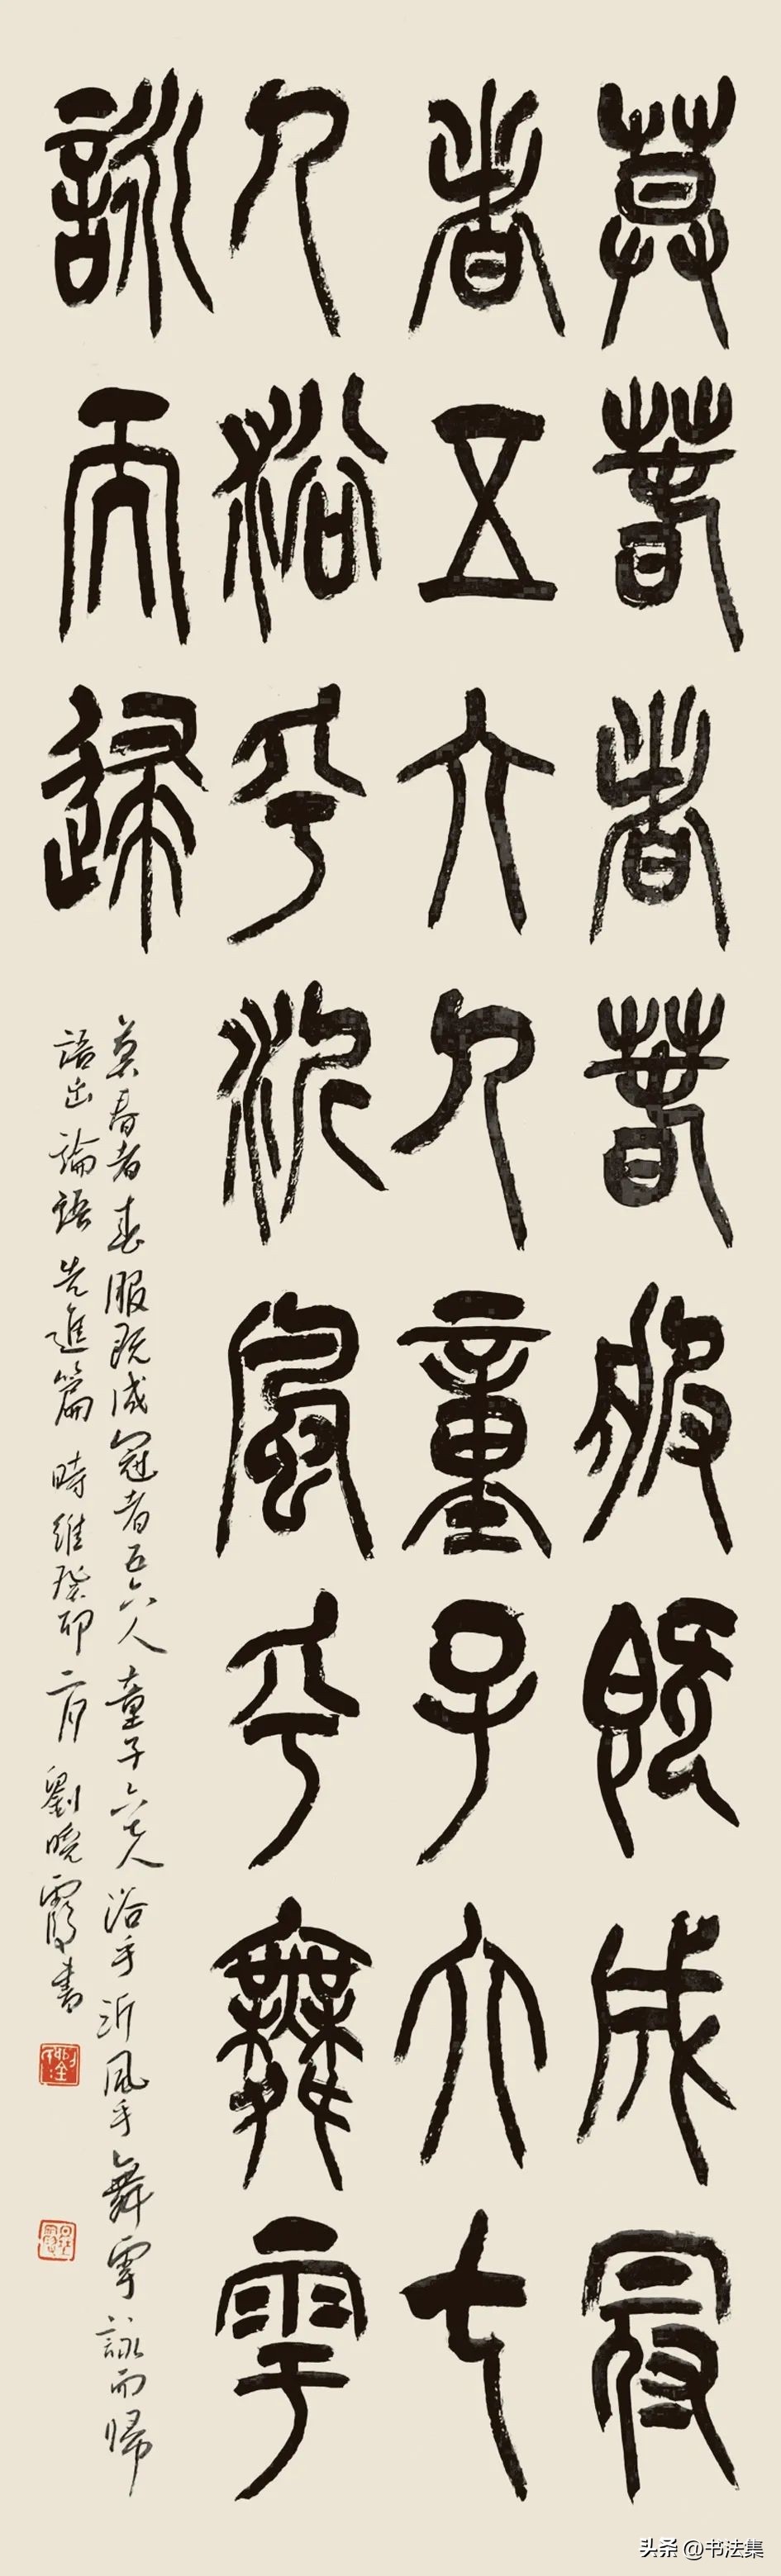 莫萅者萅服既成冠
者五六人童子六七
人浴乎沂風乎舞雩
詠而歸
莫春者春服既成冠者五六人童子六七人浴乎沂風乎舞雩詠而歸
語出論語先進篇時維癸卯二月劉曉霞書
头条 @书法集